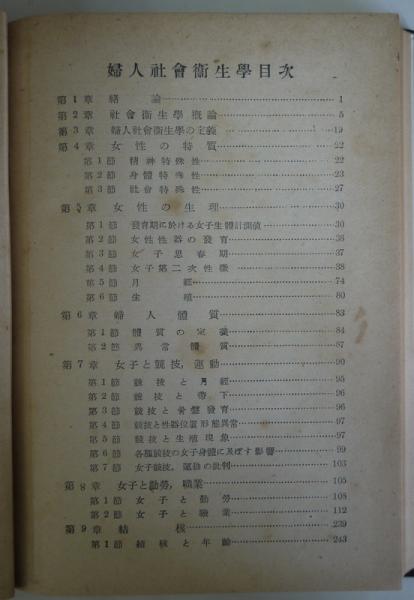 婦人社會衞生學目次
第1章 緖論 1
第2章 社會衞生學槪論 5
第3章 婦人社會衞生學の定義 19
第4章 女性の特質 22
第1節 精神特殊性 22
第2節 身體特殊性 23
第3節 社會特殊性 27
第5章 女性の生理 30
第1節 發育期に於ける女子生體計測値 30
第2節 女性性器の發育 36
第3節 女子思春期 37
第4節 女子第二次性徵 38
第5節 月經 74
第6節 生殖 80
第6章 婦人體質 83
第1節 體質の定義 84
第2節 異常體質 87
第7章 女子と競技,運動 90
第1節 競技と月經 95
第2節 競技と帶下 96
第3節 競技と骨盤發育 96
第4節 競技と性器位置形態異常 97
第5節 競技と生殖現象 97
第6節 各種競技の女子身體に及ぼす影響 99
第7節 女子競技,運動の批判 103
第8章 女子と勤勞,職業 105
第1節 女子と勤勞 108
第2節 女子と職業 112
第9章 結核 239
第1節 結核と年齡 243